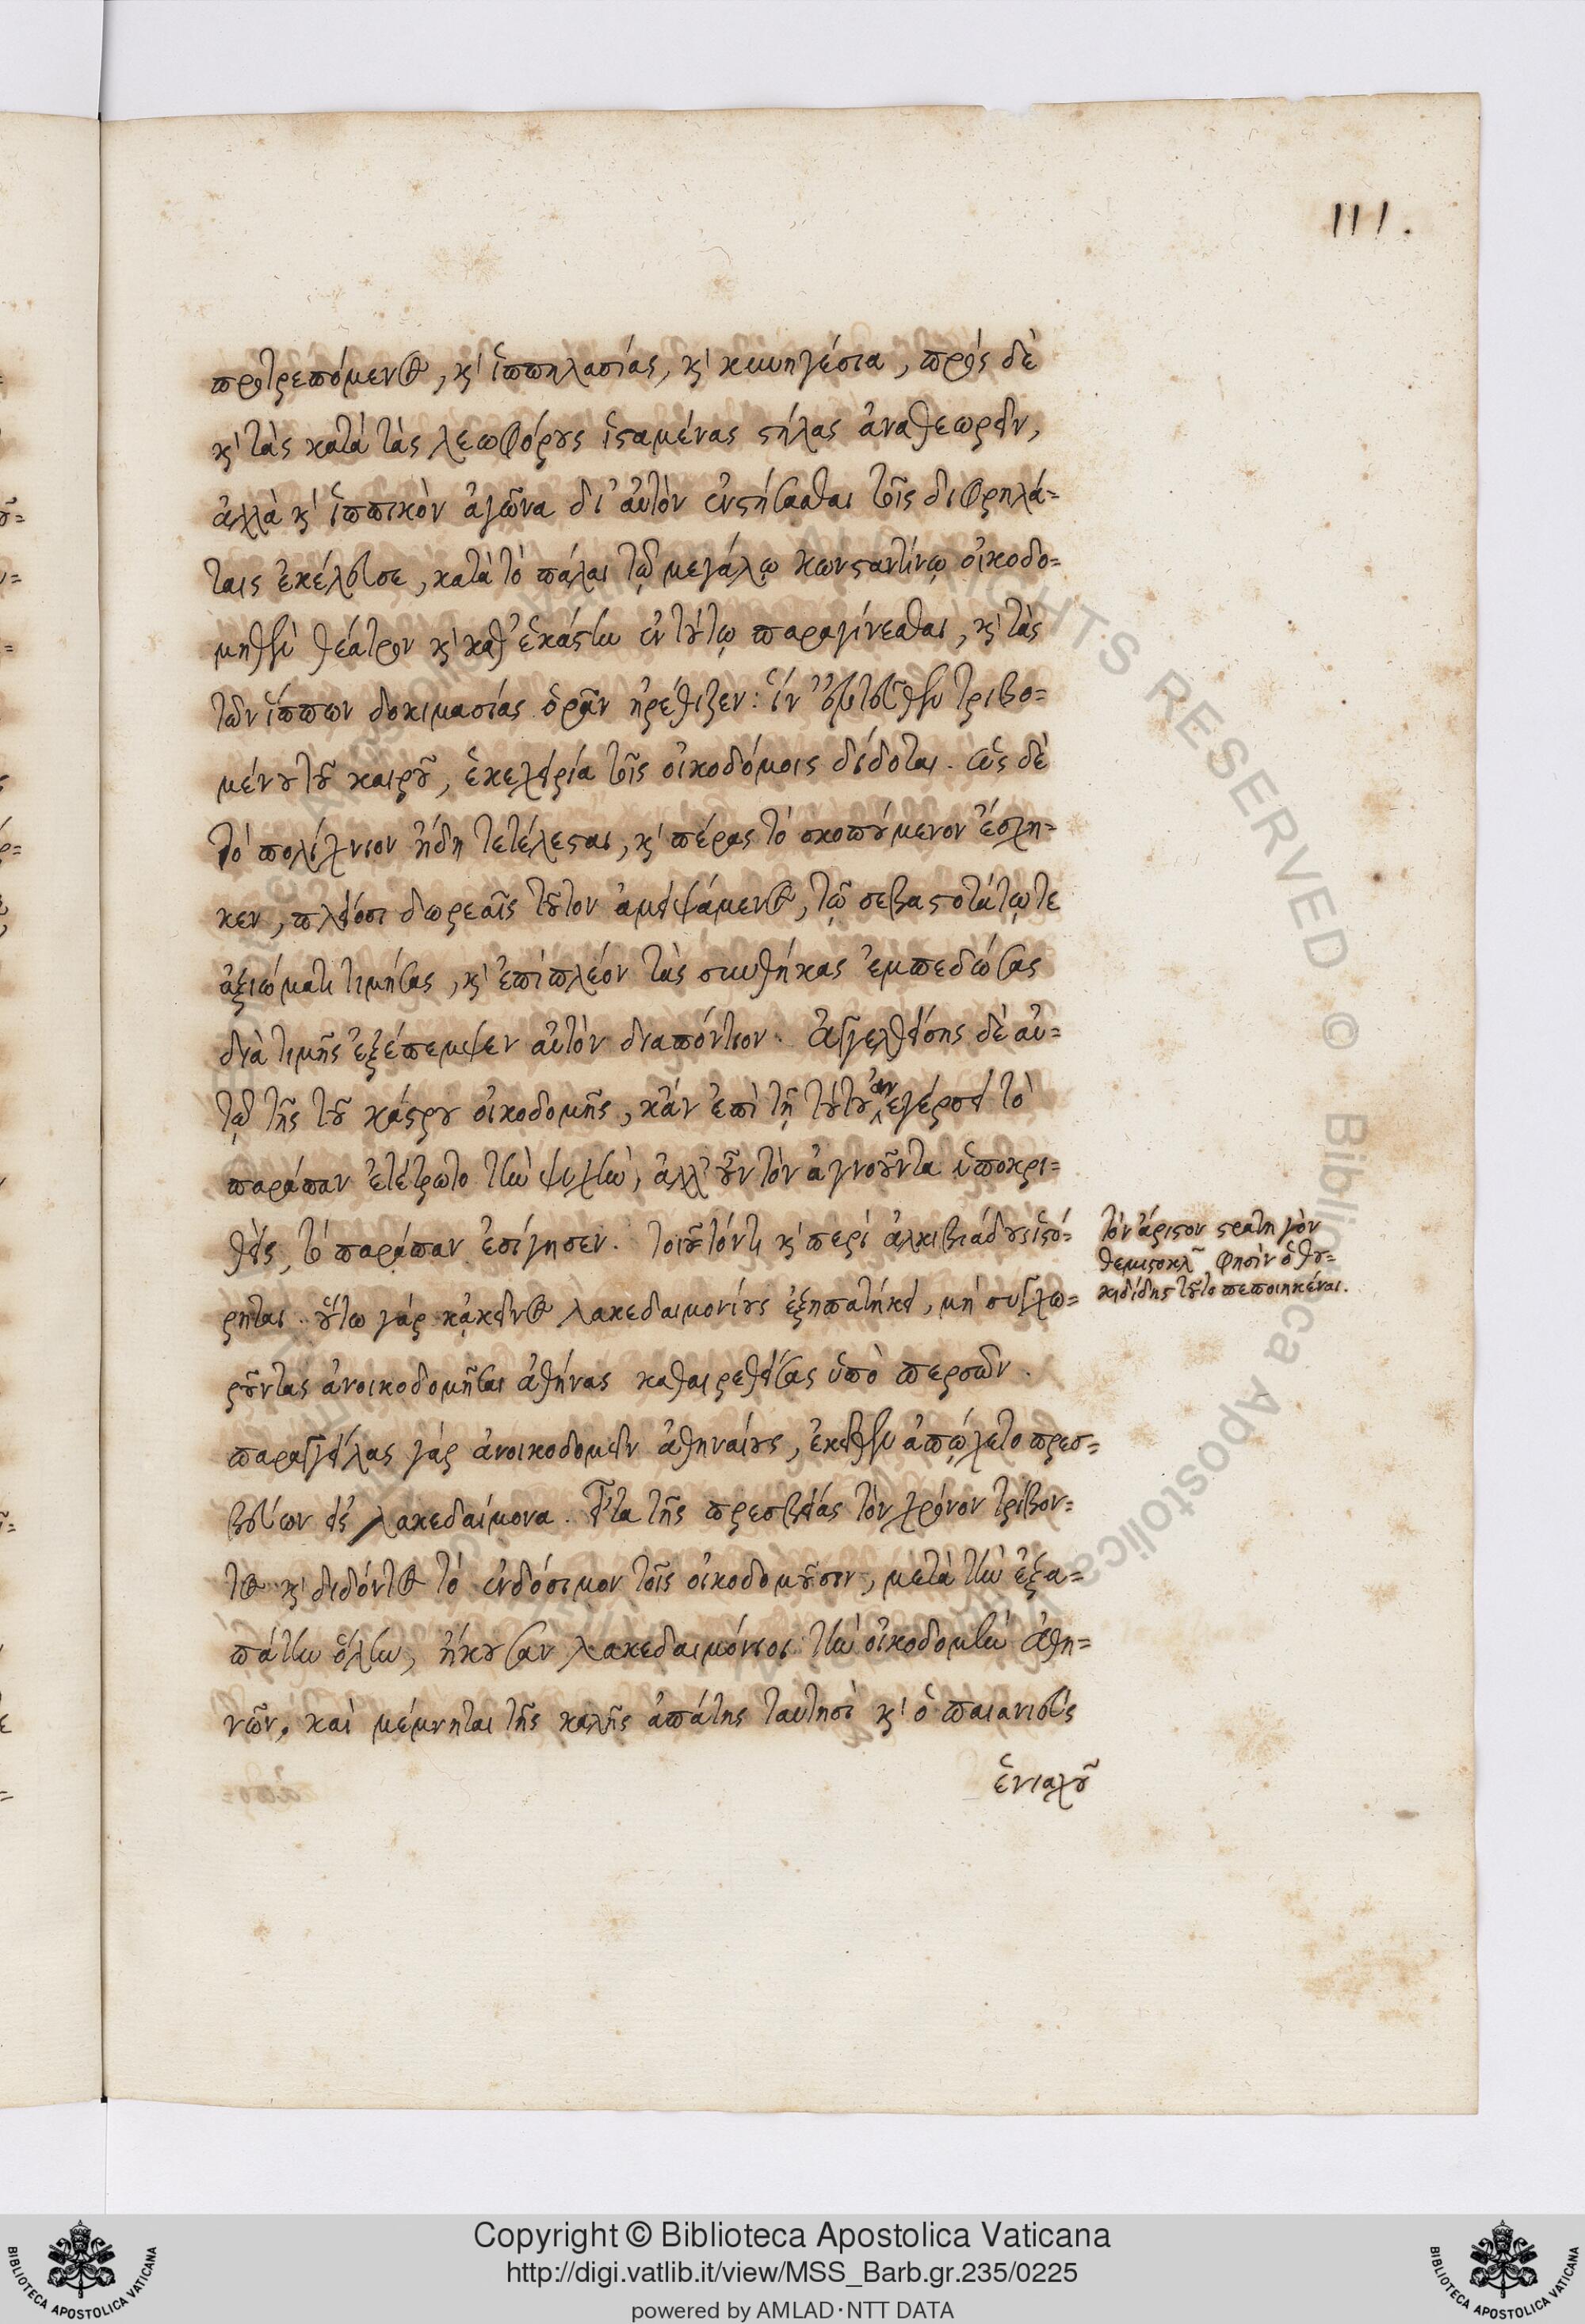 111.
προτρεπόμενος, κ' ἱππηλασίας, κ' κυνηγέσια, πρὸς δὲ
κ' τὰς κατὰ τὰς λεωφόρους ἱσταμένας στήλας ἀναθεωρεῖν,
ἀλλὰ κ' ἱππικὸν ἀγῶνα δι' αὐτὸν ἐνστήσασθαι τοῖς διφρηλά=
ταις ἐκέλευσε, κατὰ τὸ πάλαι τῷ μεγάλῳ κωνσταντίνῳ οἰκοδο=
μηθὲν θέατρον κ' καθ' ἑκάστην ἐν τούτῳ παραγίνεσθαι, κ' τὰς
τῶν ἵππων δοκιμασίας ὁρᾶν ἠρέθιζεν: ἵν' ἐντεῦθεν τριβο=
μένου τοῦ καιροῦ, ἐκεχειρία τοῖς οἰκοδόμοις δίδοται. ὡς δὲ
τὸ πολίχνιον ἤδη τετέλεσται, κ' πέρας τὸ σκοπούμενον ἔσχη=
κεν, πλείοσι δωρεαῖς τοῦτον ἀμειψάμενος, τῷ σεβαστοτάτῳ τε
ἀξιώματι τιμήσας, κ' ἐπὶ πλέον τὰς συνθήκας ἐμπεδώσας
διὰ τιμῆς ἐξέπεμψεν αὐτὸν διαπόντιον. Ἀγγελθείσης δὲ αὐ=
τῷ τῆς τοῦ κάστρου οἰκοδομῆς, κἂν ἐπὶ τῇ τούτου ἀνεγέρσει τὸ
παράπαν ἐτέτρωτο τὴν ψυχὴν, ἀλλ' οὖν τὸν ἀγνοοῦντα ὑποκρι=
θεὶς, τὸ παράπαν ἐσίγησεν. τοιοῦτόν τι κ' περὶ ἀλκιβιάδους ἱστό=
ρηται. οὕτω γὰρ κἀκεῖνος λακεδαιμονίους ἐξηπατήκει, μὴ συγχω=
ροῦντας ἀνοικοδομῆσαι ἀθήνας καθαιρεθείσας ὑπὸ περσῶν.
παραγγείλας γὰρ ἀνοικοδομεῖν ἀθηναίους, ἐκεῖθεν ἀπῴχετο πρεσ=
βεύων εἰς λακεδαίμονα. Εἶτα τῆς πρεσβείας τὸν χρόνον τρίβον=
τος κ' διδόντος τὸ ἐνδόσιμον τοῖς οἰκοδομοῦσιν, μετὰ τὴν ἐξα=
πάτην ὅλην, ἤκουσαν λακεδαιμόνιοι τὴν οἰκοδομὴν ἀθη=
νῶν. καὶ μέμνηται τῆς καλῆς ἀπάτης ταυτησὶ κ' ὁ παιανιεὺς
ἐνιαχοῦ
τὸν ἄριστον στρατηγὸν
θεμιστοκλ φησὶν ὁ θου=
κιδίδης τοῦτο πεποιηκέναι.
Copyright © Biblioteca Apostolica Vaticana
http://digi.vatlib.it/view/MSS_Barb.gr.235/0225
powered by AMLAD·NTT DATA
BIBLIOTECA APOSTOLICA VATICANA
BIBLIOTECA APOSTOLICA VATICANA